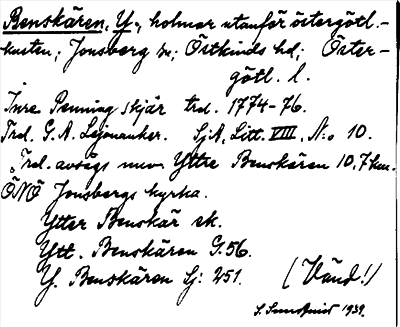 Benskären, Y., holmar utanför östergötl.-
kusten; Jonsberg sn; Östkinds hd; Öster-
götl. l.
Inre Penning skjär trol. 1774-76.
Trol. G. A. Lejonanker. SjA, Litt. VIII, N:o 10.
Trol. avsågs nuv. Yttre Benskären 10,7 km.
ÖNÖ Jonsbergs kyrka.
Ytter Benskär ek.
Ytt. Benskären G. 56.
Y. Benskären Sj: 251. (Vänd!)
1939.